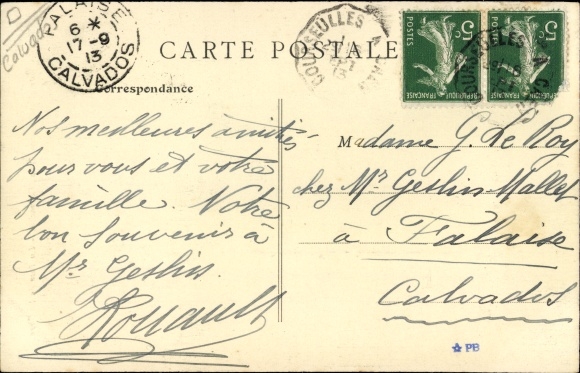 Calvados
FALAISE
6 * 17-9
13
CALVADOS
CARTE POSTALE
COURSEULLES A
5c
POSTES
REPUBLIQUE FRANÇAISE
5c
POSTES
REPUBLIQUE FRANÇAISE
COURSEULLES A CAEN
Correspondance
Nos meilleures amitiés
pour vous et votre
famille. Notre
bon souvenir à
Mr Geslin.
Rouault
Madame G. Le Roy
chez Mr Geslin-Mallet
à Falaise
Calvados
PB